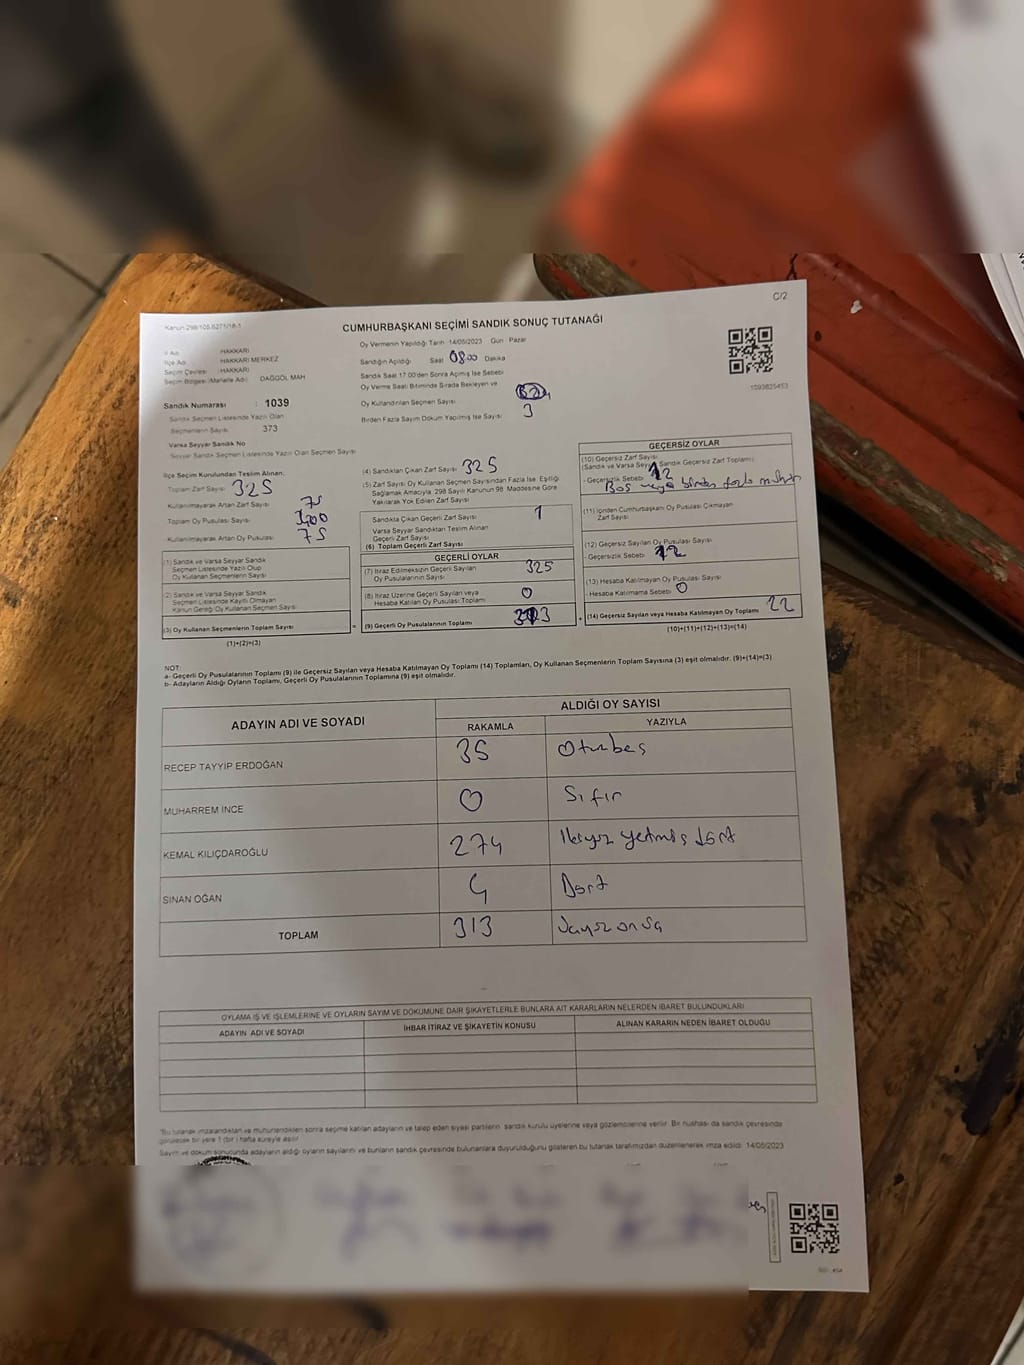 C/2
Kanun:298/105,6271/18-1
CUMHURBAŞKANI SEÇİMİ SANDIK SONUÇ TUTANAĞI
İl Adı : HAKKARİ
İlçe Adı : HAKKARİ MERKEZ
Seçim Çevresi : HAKKARİ
Seçim Bölgesi (Mahalle Adı) : DAĞGÖL MAH
Sandık Numarası : 1039
Sandık Seçmen Listesinde Yazılı Olan
Seçmenlerin Sayısı 373
Varsa Seyyar Sandık No
Seyyar Sandık Seçmen Listesinde Yazılı Olan Seçmen Sayısı
Oy Vermenin Yapıldığı Tarih :14/05/2023 Gün : Pazar
Sandığın Açıldığı Saat 08:00 Dakika
Sandık Saat 17:00'den Sonra Açılmış İse Sebebi
Oy Verme Saati Bitiminde Sırada Bekleyen ve
Oy Kullandırılan Seçmen Sayısı
Birden Fazla Sayım Döküm Yapılmış İse Sayısı 3
1093825453
İlçe Seçim Kurulundan Teslim Alınan;
Toplam Zarf Sayısı 325
Kullanılmayarak Artan Zarf Sayısı 75
Toplam Oy Pusulası Sayısı
Kullanılmayarak Artan Oy Pusulası 75
(1) Sandık ve Varsa Seyyar Sandık
Seçmen Listesinde Yazılı Olup
Oy Kullanan Seçmenlerin Sayısı
(2) Sandık ve Varsa Seyyar Sandık
Seçmen Listesinde Kayıtlı Olmayan
Kanun Gereği Oy Kullanan Seçmen Sayısı
(3) Oy Kullanan Seçmenlerin Toplam Sayısı
(1)+(2)=(3)
(4) Sandıktan Çıkan Zarf Sayısı 325
(5) Zarf Sayısı Oy Kullanan Seçmen Sayısından Fazla İse, Eşitliği
Sağlamak Amacıyla, 298 Sayılı Kanunun 98. Maddesine Göre
Yakılarak Yok Edilen Zarf Sayısı
Sandıkta Çıkan Geçerli Zarf Sayısı 1
Varsa Seyyar Sandıktan Teslim Alınan
Geçerli Zarf Sayısı
(6) Toplam Geçerli Zarf Sayısı
GEÇERLİ OYLAR
(7) İtiraz Edilmeksizin Geçerli Sayılan
Oy Pusulalarının Sayısı 325
(8) İtiraz Üzerine Geçerli Sayılan veya
Hesaba Katılan Oy Pusulası Toplamı 0
= (9) Geçerli Oy Pusulalarının Toplamı
GEÇERSİZ OYLAR
(10) Geçersiz Zarf Sayısı
(Sandık ve Varsa Seyyar Sandık Geçersiz Zarf Toplamı)
- Geçersizlik Sebebi 12
Boş veya birden fazla mühür
(11) İçinden Cumhurbaşkanı Oy Pusulası Çıkmayan
Zarf Sayısı
(12) Geçersiz Sayılan Oy Pusulası Sayısı
- Geçersizlik Sebebi 12
(13) Hesaba Katılmayan Oy Pusulası Sayısı
- Hesaba Katılmama Sebebi 0
+ (14) Geçersiz Sayılan veya Hesaba Katılmayan Oy Toplamı
(10)+(11)+(12)+(13)=(14)
NOT:
a- Geçerli Oy Pusulalarının Toplamı (9) ile Geçersiz Sayılan veya Hesaba Katılmayan Oy Toplamı (14) Toplamları, Oy Kullanan Seçmenlerin Toplam Sayısına (3) eşit olmalıdır. (9)+(14)=(3)
b- Adayların Aldığı Oyların Toplamı, Geçerli Oy Pusulalarının Toplamına (9) eşit olmalıdır.
ADAYIN ADI VE SOYADI ALDIĞI OY SAYISI
RAKAMLA YAZIYLA
RECEP TAYYİP ERDOĞAN 35 Otuzbeş
MUHARREM İNCE 0 Sıfır
KEMAL KILIÇDAROĞLU 274 İkiyüz yetmiş dört
SİNAN OĞAN 4 Dört
TOPLAM 313
OYLAMA İŞ VE İŞLEMLERİNE VE OYLARIN SAYIM VE DÖKÜMÜNE DAİR ŞİKAYETLERLE BUNLARA AİT KARARLARIN NELERDEN İBARET BULUNDUKLARI
ADAYIN ADI VE SOYADI İHBAR İTİRAZ VE ŞİKAYETİN KONUSU ALINAN KARARIN NEDEN İBARET OLDUĞU
"Bu tutanak imzalandıktan ve mühürlendikten sonra seçime katılan adayların ve talep eden siyasi partilerin, sandık kurulu üyelerine veya gözlemcilerine verilir. Bir nüshası da sandık çevresinde
görülecek bir yere 1 (bir) hafta süreyle asılır
Sayım ve döküm sonucunda adayların aldığı oyların sayılarını ve bunların sandık çevresinde bulunanlara duyurulduğunu gösteren bu tutanak tarafımızdan düzenlenerek imza edildi. 14/05/2023